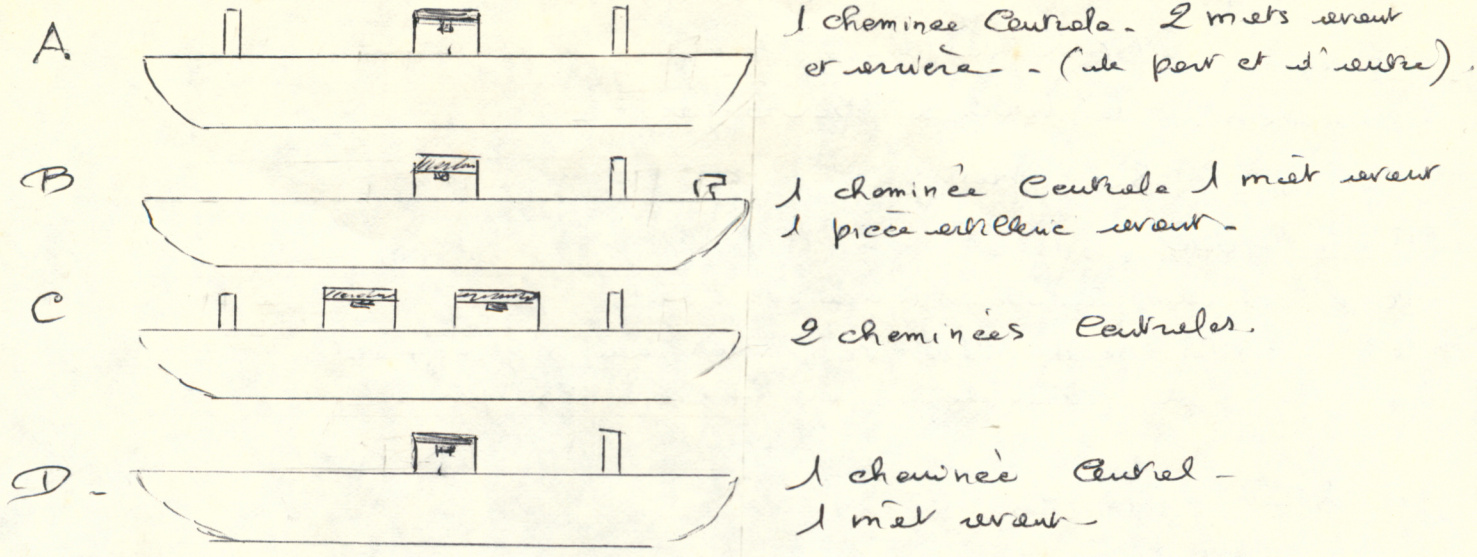 A
1 cheminée Centrale. 2 mats avant
et arrière - - (de part et d'autre).
B
1 cheminée Centrale 1 mât avant
1 pièce artillerie avant -
C
2 cheminées Centrales.
D -
1 cheminée Central -
1 mât avant -